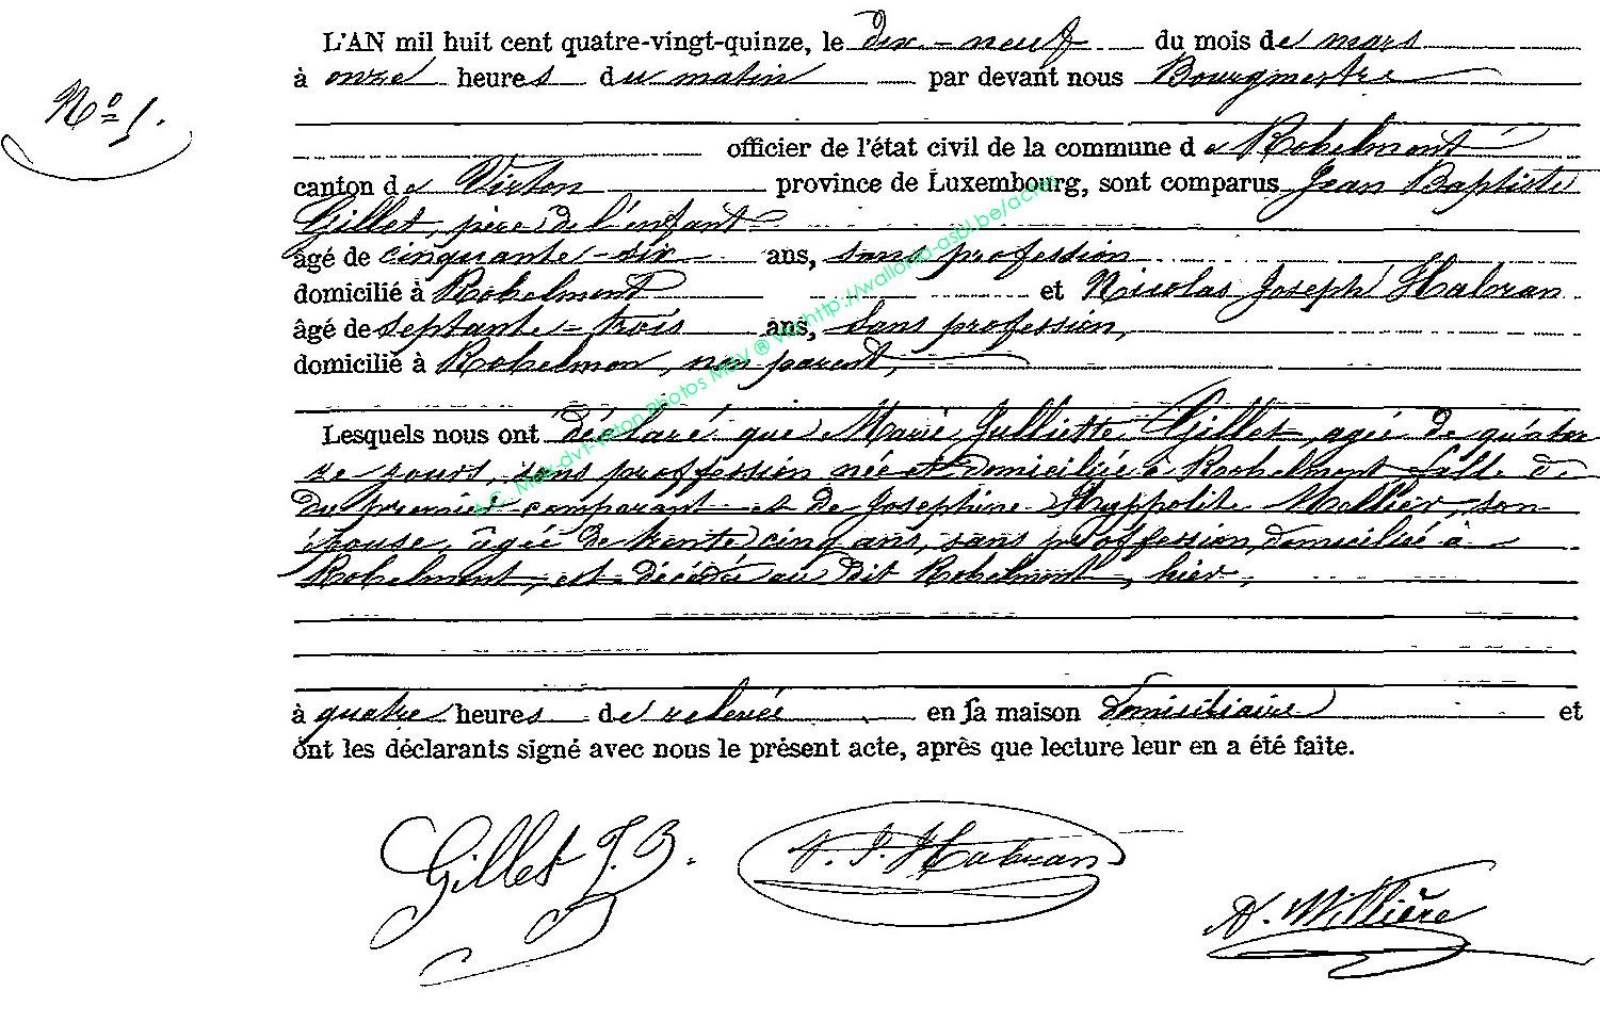 L'AN mil huit cent quatre-vingt-quinze, le dix-neuf du mois de mars
à onze heures du matin par devant nous Bourgmestre
N° 1.
officier de l'état civil de la commune de Robelmont
canton de Virton province de Luxembourg, sont comparus Jean Baptiste
Gillet, père de l'enfant
âgé de cinquante-six ans, sans profession
domicilié à Robelmont et Nicolas Joseph Habran
âgé de septante-trois ans, sans profession,
domicilié à Robelmon, non parent,
Lesquels nous ont déclaré que Marie Julliette Gillet, agée de quator
ze jours, sans proffession née et domiciliée à Robelmont fille de
du premier comparant et de Josephine Hyppolite Mellier, son
épouse, âgée de trente cinq ans, sans proffession, domiciliée à
Robelmont, est décédée au dit Robelmont, hier,
à quatre heures de relevée en sa maison domiciliaire et
ont les déclarants signé avec nous le présent acte, après que lecture leur en a été faite.
Gillet J. B.
N. J. Habran
A. Millière
A.C. MaX-dv1-Virton Photos MaV ® V http://wallonia-asbl.be/actes